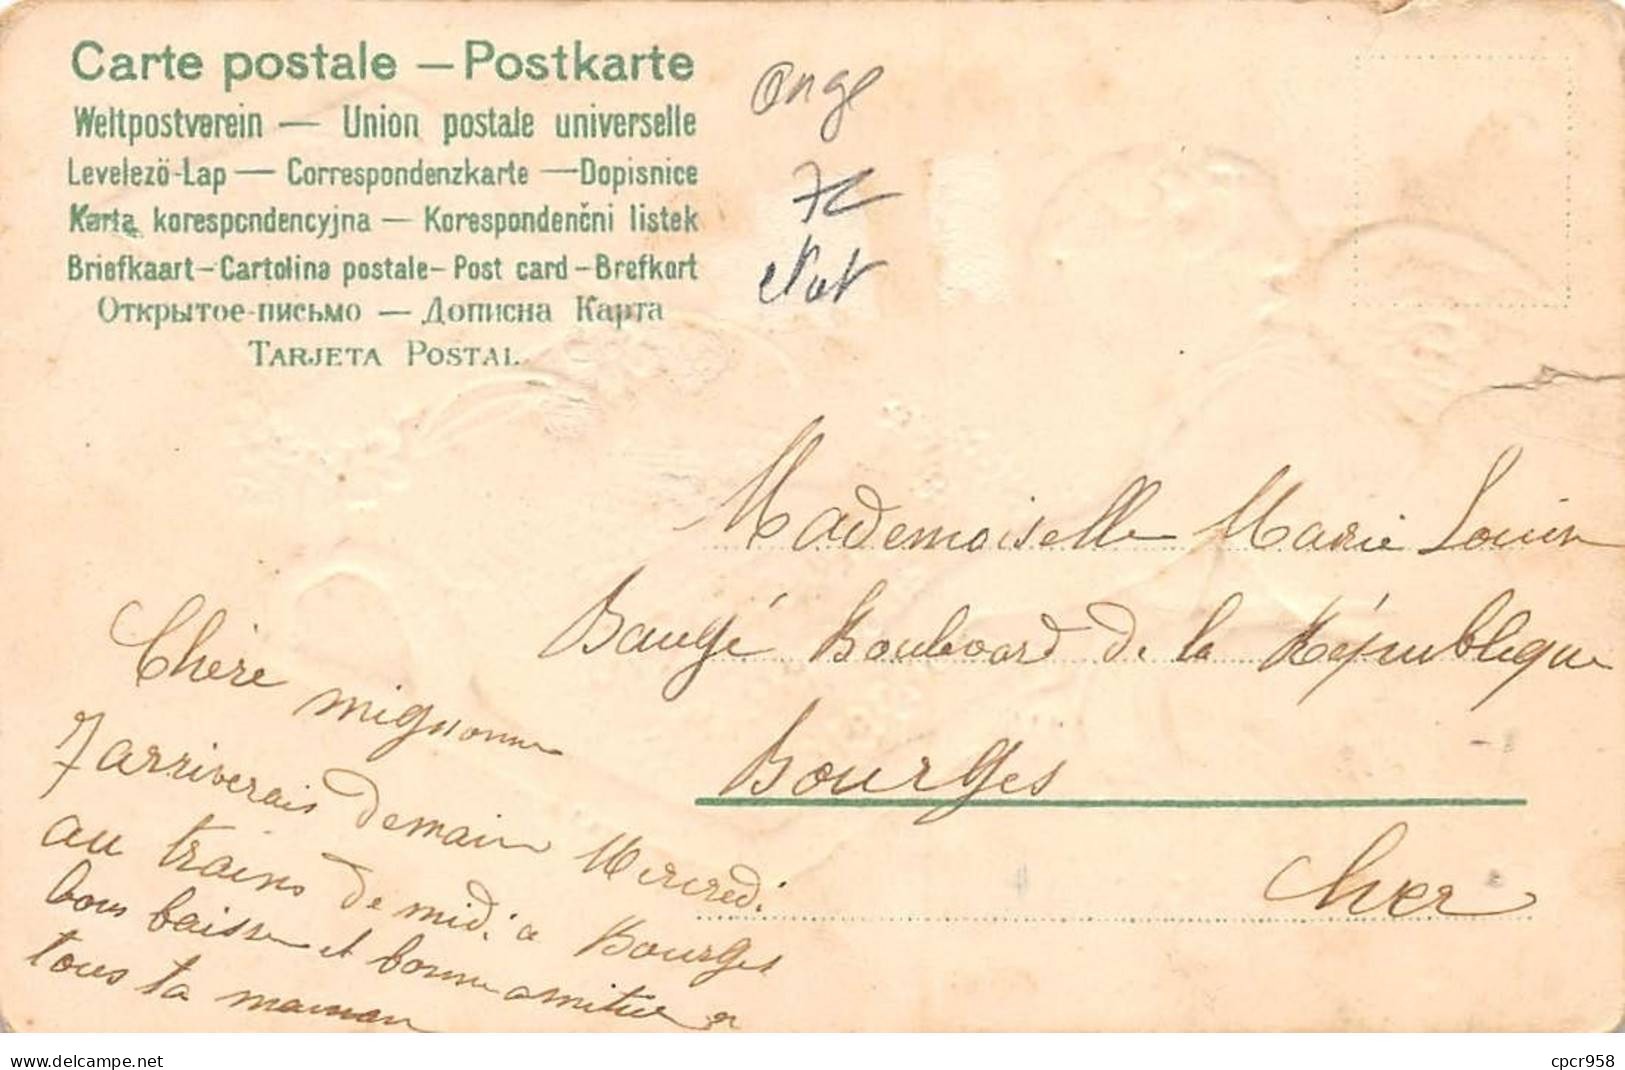 Carte postale — Postkarte
Weltpostverein — Union postale universelle
Levelezö-Lap — Correspondenzkarte — Dopisnice
Karta korespondencyjna — Korespondenčni listek
Briefkaart — Cartolina postale — Post card — Brefkort
Открытое-письмо — Дописна Карта
TARJETA POSTAL
Ange
Mademoiselle Marie
Baugé Boulevard de la République
Bourges
Cher
Chère mignonne
J arriverais demain Mercredi
au trains de midi a Bourges
bons baisse et bonne amitié a
tous ta maman
www.delcampe.net
cpcr958